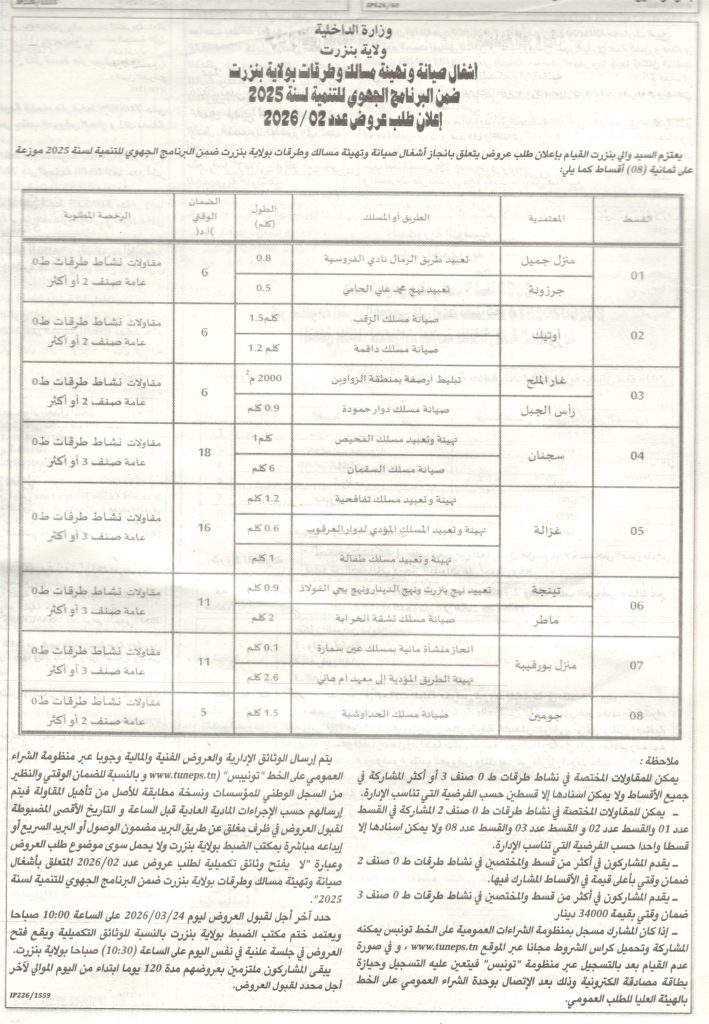 وزارة الداخلية
ولاية بنزرت
أشغال صيانة وتهيئة مسالك وطرقات بولاية بنزرت
ضمن البرنامج الجهوي للتنمية لسنة 2025
إعلان طلب عروض عدد 02/ 2026
يعتزم السيد والي بنزرت القيام بإعلان طلب عروض يتعلق بانجاز أشغال صيانة وتهيئة مسالك وطرقات بولاية بنزرت ضمن البرنامج الجهوي للتنمية لسنة 2025 موزعة
على ثمانية (08) أقساط كما يلي:
القسط المعتمدية الطريق أو المسلك الطول (كلم) الضمان الوقتي (أ.د) الرخصة المطلوبة
01 منزل جميل تعبيد طريق الرمال نادي الفروسية 0.8 6 مقاولات نشاط طرقات ط0 عامة صنف 2 أو أكثر
جرزونة تعبيد نهج محمد علي الحامي 0.5
02 أوتيك صيانة مسلك الزقب 1.5كلم 6 مقاولات نشاط طرقات ط0 عامة صنف 2 أو أكثر
صيانة مسلك داقمة 1.2 كلم
03 غار الملح تبليط أرصفة بمنطقة الزواوين 2000 م2 6 مقاولات نشاط طرقات ط0 عامة صنف 2 أو أكثر
رأس الجبل صيانة مسلك دوار حمودة 0.9 كلم
04 سجنان تهيئة وتعبيد مسلك الفحيص 1كلم 18 مقاولات نشاط طرقات ط0 عامة صنف 3 أو أكثر
صيانة مسلك السقمان 6 كلم
05 غزالة تهيئة و تعبيد مسلك تفافحية 1.2 كلم 16 مقاولات نشاط طرقات ط0 عامة صنف 3 أو أكثر
تهيئة و تعبيد المسلك المؤدي لدوار العرقوب 0.6 كلم
تهيئة و تعبيد مسلك طفالة 1 كلم
06 تينجة تعبيد نهج بنزرت ونهج الدينارونهج بحي الفولاذ 0.9 كلم 11 مقاولات نشاط طرقات ط0 عامة صنف 3 أو أكثر
ماطر صيانة مسلك نشفة الخرابة 2 كلم
07 منزل بورقيبة انجاز منشأة مائية بمسلك عين سمارة 0.1 كلم 11 مقاولات نشاط طرقات ط0 عامة صنف 3 أو أكثر
تهيئة الطريق المؤدية إلى معهد أم هاني 2.6 كلم
08 جومين صيانة مسلك الحداوشية 1.5 كلم 5 مقاولات نشاط طرقات ط0 عامة صنف 2 أو أكثر
ملاحظة :
يمكن للمقاولات المختصة في نشاط طرقات ط 0 صنف 3 أو أكثر المشاركة في
جميع الأقساط ولا يمكن اسنادها إلا قسطين حسب الفرضية التي تناسب الإدارة.
_ يمكن للمقاولات المختصة في نشاط طرقات ط 0 صنف 2 المشاركة في القسط
عدد 01 والقسط عدد 02 و القسط عدد 03 والقسط عدد 08 ولا يمكن اسنادها إلا
قسطا واحدا حسب الفرضية التي تناسب الإدارة.
_ يقدم المشاركون في أكثر من قسط والمختصين في نشاط طرقات ط 0 صنف 2
ضمان وقتي بأعلى قيمة في الأقساط المشارك فيها.
_ يقدم المشاركون في أكثر من قسط والمختصين في نشاط طرقات ط 0 صنف 3
ضمان وقتي بقيمة 34000 دينار
_ إذا كان المشارك مسجل بمنظومة الشراءات العمومية على الخط تونيبس يمكنه
المشاركة وتحميل كراس الشروط مجانا عبر الموقع www.tuneps.tn ، و في صورة
عدم القيام بعد بالتسجيل عبر منظومة "تونيبس" فيتعين عليه التسجيل وحيازة
بطاقة مصادقة الكترونية وذلك بعد الإتصال بوحدة الشراء العمومي على الخط
بالهيئة العليا للطلب العمومي.
يتم إرسال الوثائق الإدارية والعروض الفنية والمالية وجوبا عبر منظومة الشراء
العمومي على الخط "تونيبس" (www.tuneps.tn و بالنسبة للضمان الوقتي والنظير
من السجل الوطني للمؤسسات ونسخة مطابقة للأصل من تأهيل المقاولة فيتم
إرسالهم حسب الإجراءات المادية العادية قبل الساعة و التاريخ الأقصى المضبوطة
لقبول العروض في ظرف مغلق عن طريق البريد مضمون الوصول أو البريد السريع أو
إيداعه مباشرة بمكتب الضبط بولاية بنزرت ولا يحمل سوى موضوع طلب العروض
وعبارة "لا يفتح وثائق تكميلية لطلب عروض عدد 2026/02 المتعلق بأشغال
صيانة وتهيئة مسالك وطرقات بولاية بنزرت ضمن البرنامج الجهوي للتنمية لسنة
2025".
حدد آخر أجل لقبول العروض ليوم 2026/03/24 على الساعة 10:00 صباحا
ويعتمد ختم مكتب الضبط بولاية بنزرت بالنسبة للوثائق التكميلية ويقع فتح
العروض في جلسة علنية في نفس اليوم على الساعة (10:30) صباحا بولاية بنزرت.
يبقى المشاركون ملتزمين بعروضهم مدة 120 يوما ابتداء من اليوم الموالي لآخر
أجل محدد لقبول العروض.
IP226/1559